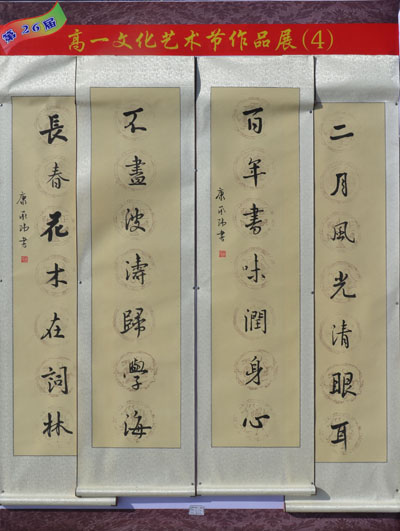 第26届
高一文化艺术节作品展(4)
二月風光清眼耳
百年書味潤身心
不盡波濤歸學海
長春花木在詞林